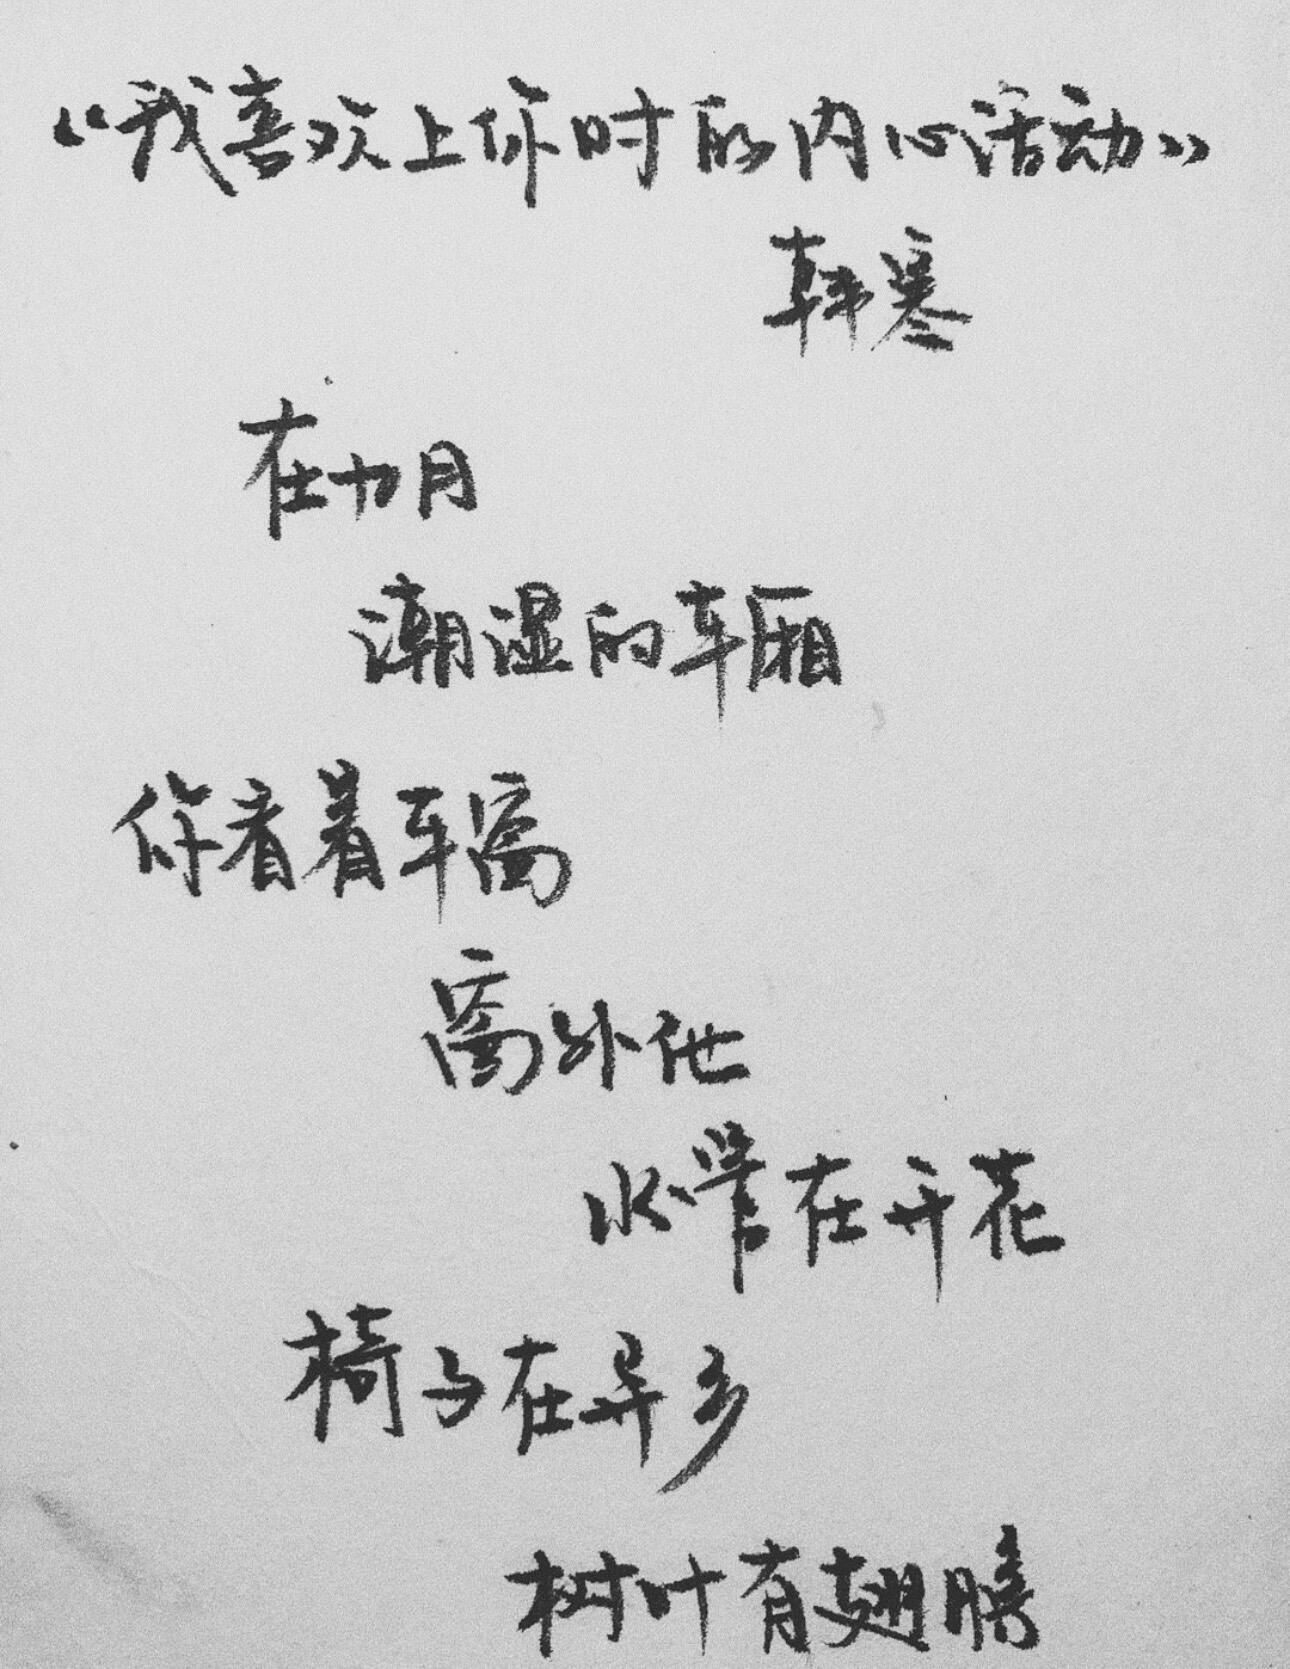 《我喜欢上你时的内心活动》
韩寒
在九月
潮湿的车厢
你看着车窗
窗外他
水管在开花
椅子在异乡
树叶有翅膀